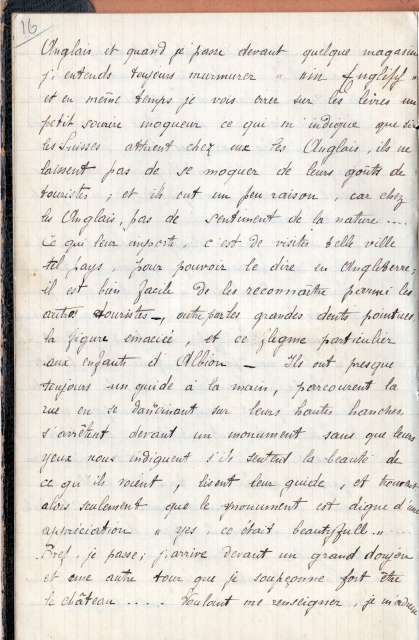 16
Anglais et quand je passe devant quelque magasin
j'entends toujours murmurer " ein Englisch "
et en même temps je vois errer sur les lèvres un
petit sourire moqueur ce qui m'indique que si
les Suisses attirent chez eux les Anglais, ils ne
laissent pas de se moquer de leurs goûts de
touristes ; et ils ont un peu raison, car chez
les Anglais, pas de sentiment de la nature ....
Ce qui leur importe, c'est de visiter telle ville
tel pays, pour pouvoir le dire en Angleterre ;
il est bien facile de les reconnaître parmi les
autres touristes —, outre par les grandes dents pointues
la figure émaciée, et ce flegme particulier
aux enfants d'Albion — Ils ont presque
toujours un guide à la main, parcourent la
rue en se dandinant sur leurs hautes hanches
s'arrêtent devant un monument sans que leurs
yeux nous indiquent s'ils sentent la beauté de
ce qu'ils voient, lisent leur guide, et trouvent
alors seulement que le monument est digne d'une
appréciation " yes, ce était beautifull. "
Bref, je passe ; j'arrive devant un grand donjon
et une autre tour que je soupçonne fort être
le château ..... Voulant me renseigner, je m'adresse